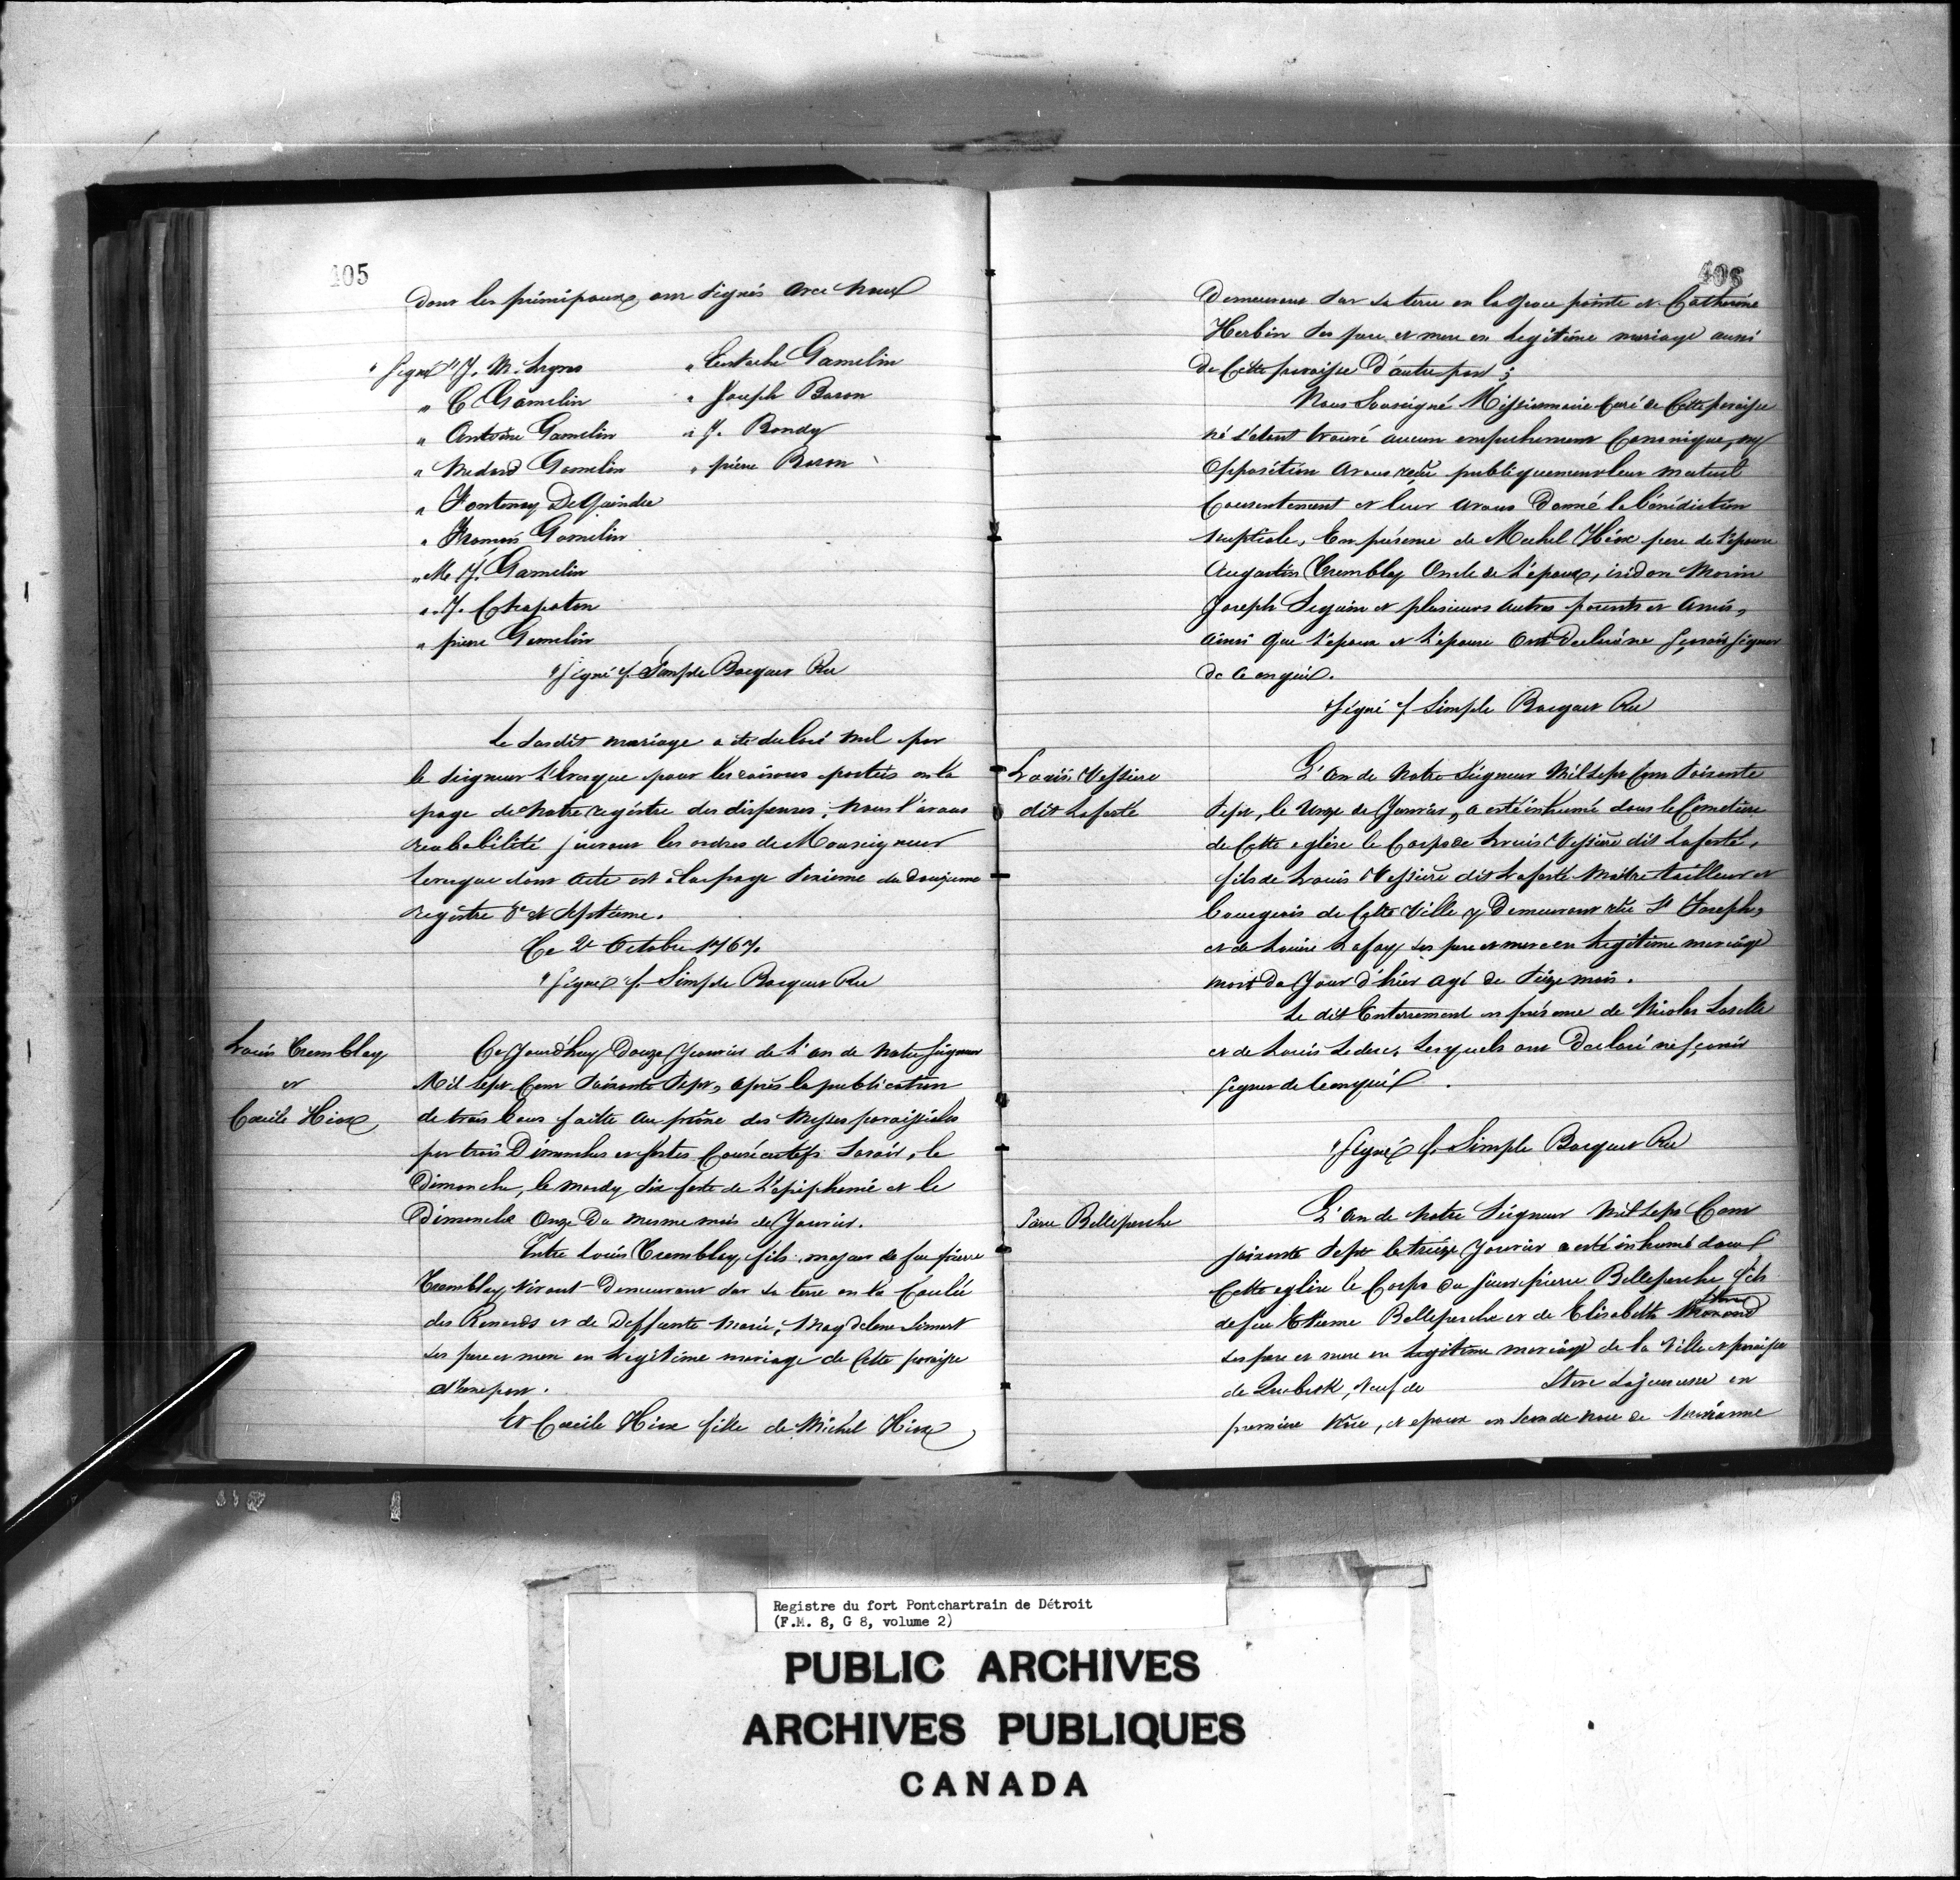 405
dont les principaux ont signés avec nous
" Signé " J. M. Legras
" C Gamelin
" Antoine Gamelin
" Medard Gamelin
" Fontenoy DeQuindre
" François Gamelin
" M. J. Gamelin
" J. Chapoton
" pierre Gamelin
" Eustache Gamelin
" Joseph Baron
" J. Bondy
" pierre Baron
" Signé f. Simple Bocquet Rec
Le susdit mariage a été declaré nul par
le seigneur L'Evesque pour les raisons portées en la
page de notre registre des dispenses; nous l'avons
reababilité suivant les ordres de Monseigneur
levesque dont acte est a la page sixieme du douzieme
registre 8e et septieme.
Ce 2 Octobre 1767.
" Signé f. Simple Bocquet Rec
Louis Tremblay
et
Cecile Hiox
Ce Jourd'huy Douze Janvier de L'an de Notre Seigneur
Mil sept Cent Soixante Sept, après la publication
de trois bans faitte au prône des Messes paroissiales
par trois Dimanches et festes Consécutifs Savoir, le
Dimanche, le mardy six feste de L'épiphanie et le
Dimanche Onze Du mesme mois de Janvier.
Entre Louis Tremblay, fils majeur de feu pierre
Tremblay vivant Demeurant sur sa terre en la Coulée
des Renards et de Deffunte Marie, Magdelene Simart
ses pere et mere en Legitime mariage de Cette paroisse
d'une part.
Et Cecile Hiox fille de Michel Hiox
406
Demeurant sur sa terre en la Grosse pointe et Catherine
Herbin ses pere et mere en Legitime mariage aussi
de Cette paroisse D'autre part;
Nous Soussigné Missionnaire Curé de Cette paroisse
né s'etant trouvé aucun empechement Canonique, ny
Opposition avons reçu publiquement leur mutuel
Consentement et leur avons Donné la bénédiction
nuptiale, En présence de Michel Hiox pere de L'epouse
Augustin Tremblay Oncle de L'epoux, isidore Morin
Joseph Seguin et plusieurs autres parents et Amis,
ainsi que L'epoux et L'epouse Ont Declaré ne Sçavoir Signer
de ce enquis.
" Signé f Simple Bocquet Rec
Louis Vessiere
dit Laferté
L'An de Notre Seigneur Mil sept Cent Soixante
Sept, le Unze de Janvier, a esté inhumé dans le Cimetiere
de Cette eglise le Corps de Louis Vessiere dit Laferté,
fils de Louis Vessiere dit Laferté Maître tailleur et
bourgeois de Cette Ville y Demeurant rüe St Joseph,
et de Louise Lafoy ses pere et mere en Legitime mariage
mort du Jour d'hier agé de Seize mois.
Le dit Enterrement en présence de Nicolas Laselle
et de Louis Leduc, Lesquels ont Declaré ne sçavoir
signer de ce enquis.
" Signé f. Simple Bocquet Rec
Pierre Belleperche
L'An de Notre Seigneur Mil Sept Cent
soixante Sept le treize Janvier a esté inhumé dans
Cette eglise le Corps du sieur pierre Belleperche fils
de feu Etienne Belleperche et de Elisabeth
ses pere et mere en Legitime mariage de la Ville et paroisse
de Quebeck, veuf de Lajeunesse en
premiere Noce, et epoux en seconde noce de Marianne
Registre du fort Pontchartrain de Détroit
(F.M. 8, G 8, volume 2)
PUBLIC ARCHIVES
ARCHIVES PUBLIQUES
CANADA